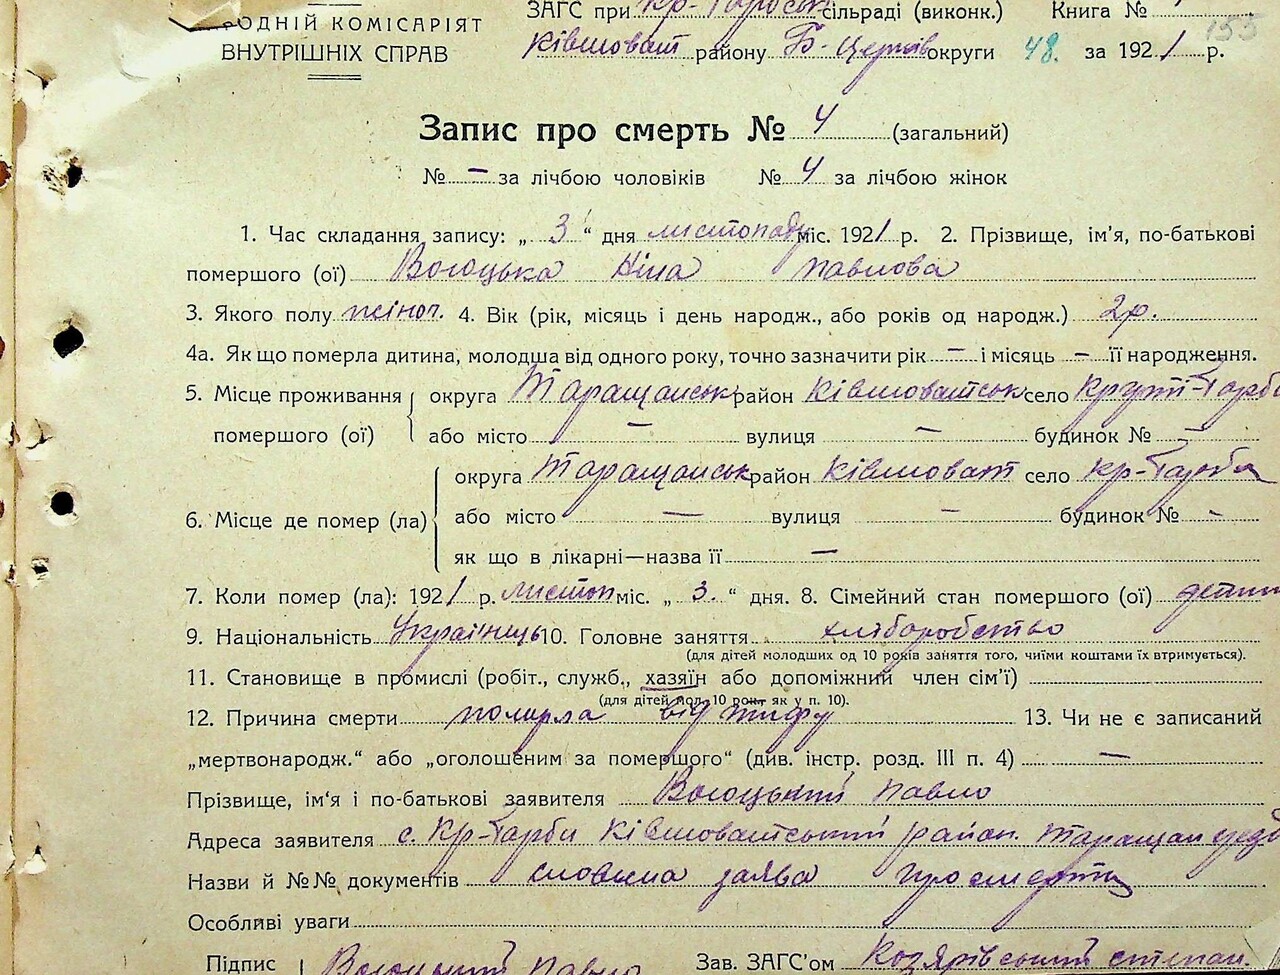 РОДНІЙ КОМІСАРІЯТ
ВНУТРІШНІХ СПРАВ
ЗАГС при кр-Гарбськ сільраді (виконк.) Книга №
Ківшоват району Б-Церків округи 48. за 1921 р.
155
Запис про смерть № 4 (загальний)
№ — за лічбою чоловіків № 4 за лічбою жінок
1. Час складання запису: „ 3 “ дня листопаду міс. 1921 р. 2. Прізвище, ім'я, по-батькові
помершого (ої) Вогоцька Ніна Павлова
3. Якого полу жіноч. 4. Вік (рік, місяць і день народж., або років од народж.) 2р.
4а. Як що померла дитина, молодша від одного року, точно зазначити рік — і місяць — її народження.
5. Місце проживання округа Таращанськ район Ківшоватськ село Круті-Горби
помершого (ої) або місто — вулиця — будинок № —
округа Таращанськ район Ківшоват село кр-Гарби
6. Місце де помер (ла) або місто — вулиця — будинок № -
як що в лікарні—назва її —
7. Коли помер (ла): 1921 р. листоп міс. „ 3. “ дня. 8. Сімейний стан помершого (ої)
9. Національність Українць 10. Головне заняття хліборобство
(для дітей молодших од 10 років заняття того, чиїми коштами їх втримується).
11. Становище в промислі (робіт., служб., хазяїн або допоміжний член сім'ї)
(для дітей мол. 10 рок. як у п. 10).
12. Причина смерти померла від тифу 13. Чи не є записаний
„мертвонародж.“ або „оголошеним за помершого“ (див. інстр. розд. III п. 4) —
Прізвище, ім'я і по-батькові заявителя Вогоцький Павло
Адреса заявителя с. Кр-Гарби Ківшоватський район. Таращан
Назви й №№ документів словесна заява про смерть
Особливі уваги
Підпис Вогоцький Павло Зав. ЗАГС'ом Козярівський степан.